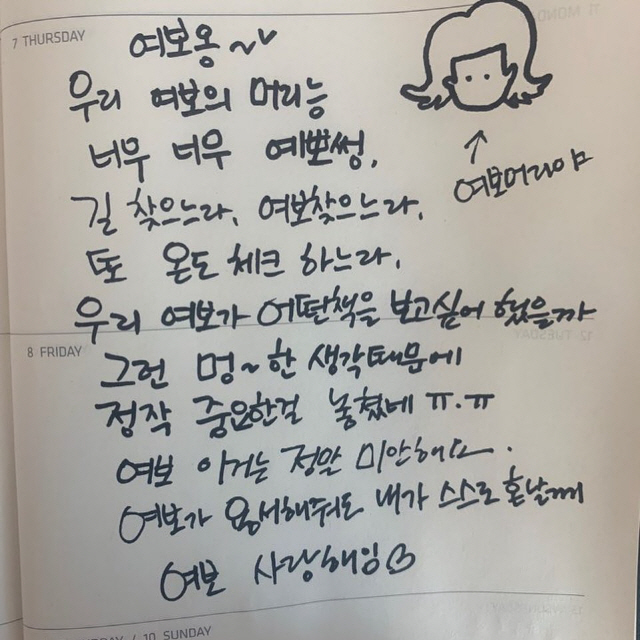 7 THURSDAY
여보옹~
우리 여보의 머리능
너무 너무 예뽀썽,
여보머리야
길 찾으느라, 여보찾으느라,
또 온도 체크 하느라,
우리 여보가 어떤책을 보고싶어 했을까
8 FRIDAY
그런 멍~한 생각때문에
정작 중요한걸 놓쳤네 ㅠ.ㅠ
여보 이거는 정말 미안해요.
여보가 용서해줘도 내가 스스로 혼날께
여보 사랑해잉♡
/ 10 SUNDAY